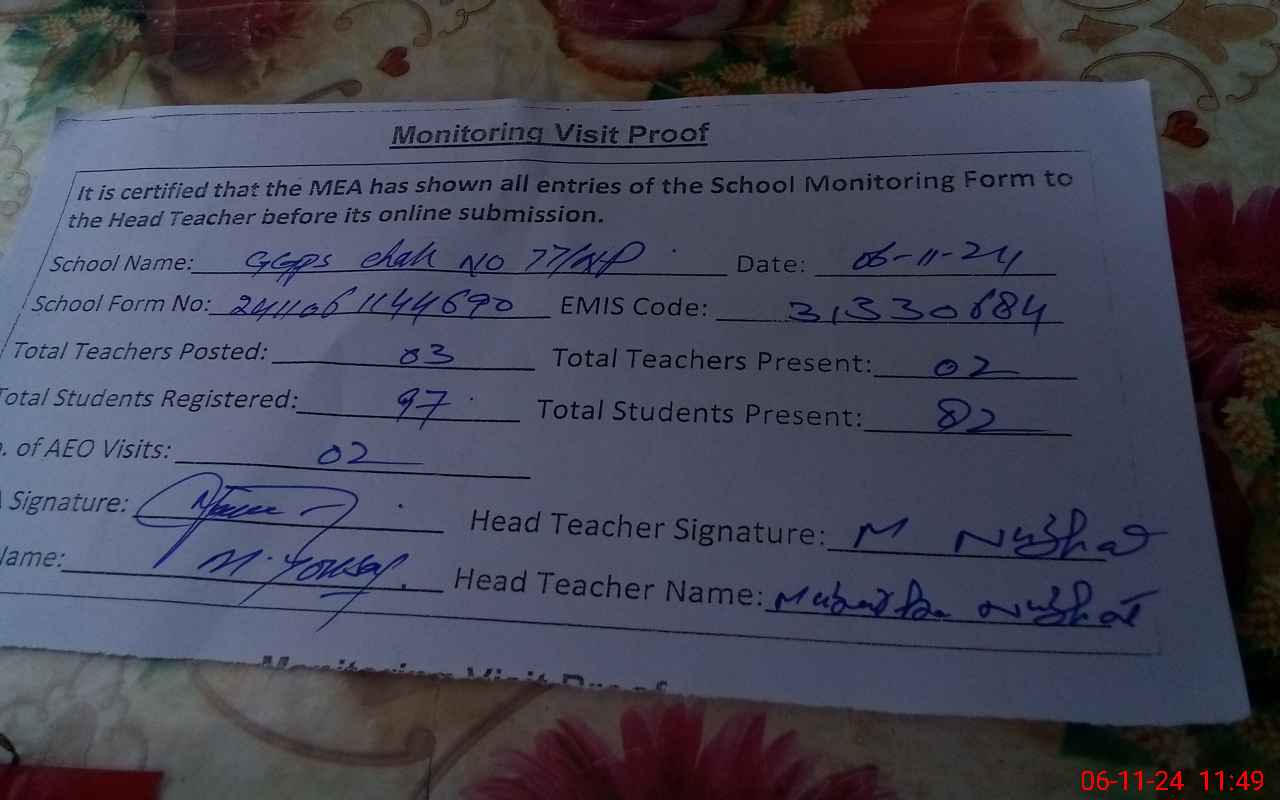 Monitoring Visit Proof
It is certified that the MEA has shown all entries of the School Monitoring Form to
the Head Teacher before its online submission.
School Name: GGPS chak NO 77/NP Date: 06-11-24
School Form No: 2411061144690 EMIS Code: 31330684
Total Teachers Posted: 03 Total Teachers Present: 02
Total Students Registered: 97 Total Students Present: 82
. of AEO Visits: 02
Signature: Head Teacher Signature: M Nuzhat
Name: M. Yousaf Head Teacher Name: Nuzhat
Monitoring Visit Proof
06-11-24 11:49